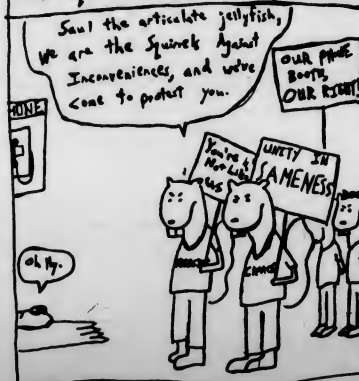 Saul the articulate jellyfish,
We are the Squirrels Against
Inconveniences, and we've
come to protest you.
OUR PHONE
BOOTH,
OUR RIGHT!
You're
Not Like
us
UNITY IN
SAMENESS
Oh My.